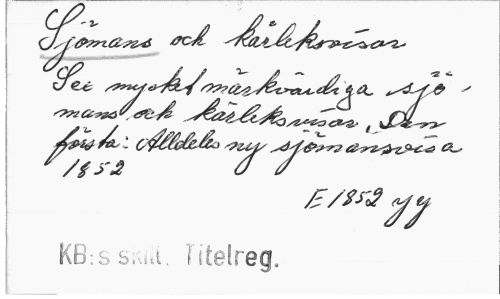 Sjömans och kärleksvisor
Sex mycket märkvärdiga sjö-
mans och kärleksvisor. Den
första: Alldeles ny sjömansvisa
1852
E 1852 yy
KB:s skill. Titelreg.